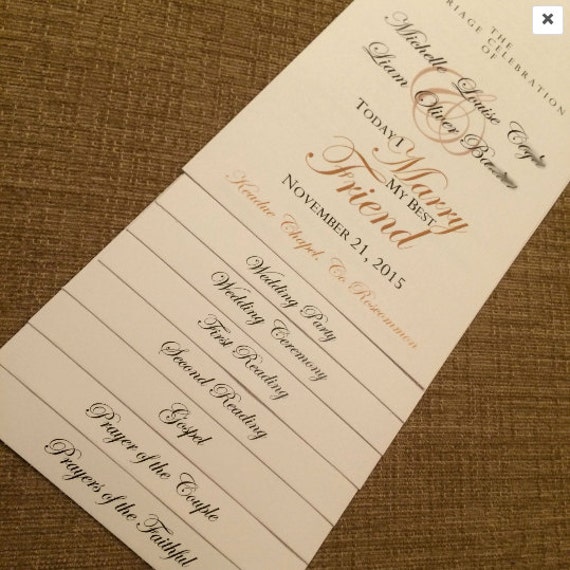 THE
MARRIAGE CELEBRATION
OF
Michelle Louise
&
Liam Oliver
TODAY I
Marry
MY BEST
Friend
NOVEMBER 21, 2015
Keadue Chapel, Co Roscommon
Wedding Party
Wedding Ceremony
First Reading
Second Reading
Gospel
Prayer of the Couple
Prayers of the Faithful